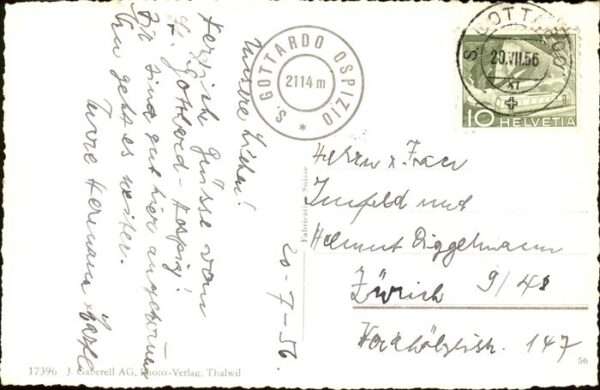 S. GOTTARDO OSPIZIO
2114 m
*
S. GOTTARDO
20.VII.56
XI
10 HELVETIA
Unsere Lieben!
Herzlich Grüsse vom
St. Gotthard-Hospiz!
Wir sind gut hier angekommen
Nun geht es weiter.
Eure Hermann
20-7-56.
Herrn & Frau
Imfeld und
Helmut Diggelmann
Zürich 9/48
147
17396 J. Gaberell AG, Photo-Verlag, Thalwil
56